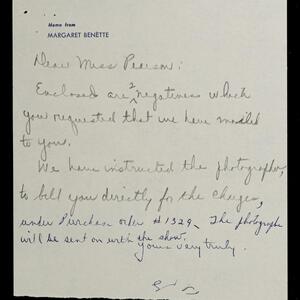 Memo from
MARGARET BENETTE
Dear Miss Pearson:
Enclosed are 2 negatives which
you requested that we have mailed
to you.
We have instructed the photographer,
to bill you directly for the charges,
under Purchase order #1329. The photographs
will be sent on with the show.
Yours very truly.